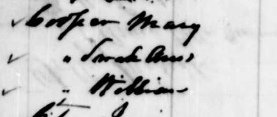 ✓ Cooper Mary
✓ " Sarah Ann
✓ " William